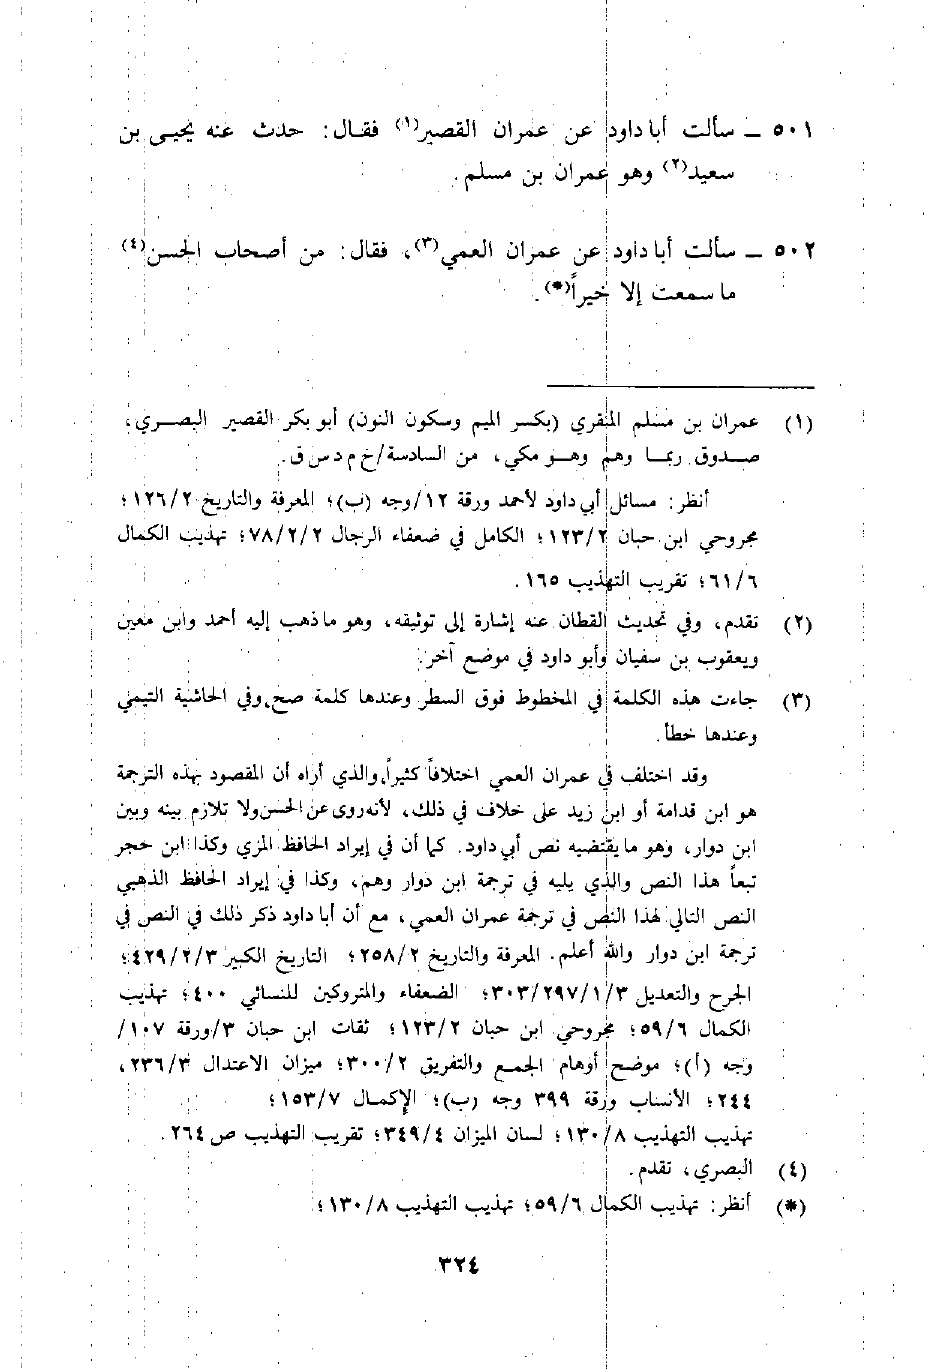 ٥٠١ ـ سألت أبا داود عن عمران القصير(١) فقال: حدث عنه يحيى بن
سعيد(٢) وهو عمران بن مسلم.
٥٠٢ ـ سألت أبا داود عن عمران العمي(٣)، فقال: من أصحاب الحسن(٤)
ما سمعت إلا خيراً(*).
(١) عمران بن مسلم المنقري (بكسر الميم وسكون النون) أبو بكر القصير البصري،
صدوق ربما وهم وهو مكي، من السادسة/خ م د س ق.
أنظر: مسائل أبي داود لأحمد ورقة ١٢/وجه (ب)؛ المعرفة والتاريخ ١٢٦/٢؛
مجروحي ابن حبان ١٢٣/٢؛ الكامل في ضعفاء الرجال ٧٨/٢/٢؛ تهذيب الكمال
٦١/٦؛ تقريب التهذيب ١٦٥.
(٢) تقدم، وفي تحديث القطان عنه إشارة إلى توثيقه، وهو ما ذهب إليه أحمد وابن معين
ويعقوب بن سفيان وأبو داود في موضع آخر.
(٣) جاءت هذه الكلمة في المخطوط فوق السطر وعندها كلمة صح، وفي الحاشية التيمي
وعندها خطأ.
وقد اختلف في عمران العمي اختلافاً كثيراً، والذي أراه أن المقصود بهذه الترجمة
هو ابن قدامة أو ابن زيد على خلاف في ذلك، لأنه روى عن الحسن ولا تلازم بينه وبين
ابن دوار، وهو ما يقتضيه نص أبي داود. كما أن في إيراد الحافظ المزي وكذا ابن حجر
تبعاً هذا النص والذي يليه في ترجمة ابن دوار وهم، وكذا في إيراد الحافظ الذهبي
النص التالي لهذا النص في ترجمة عمران العمي، مع أن أبا داود ذكر ذلك في النص في
ترجمة ابن دوار والله أعلم. المعرفة والتاريخ ٢٥٨/٢؛ التاريخ الكبير ٤٢٩/٢/٣؛
الجرح والتعديل ٣٠٣/٢٩٧/١/٣؛ الضعفاء والمتروكين للنسائي ٤٠٠؛ تهذيب
الكمال ٥٩/٦؛ مجروحي ابن حبان ١٢٣/٢؛ ثقات ابن حبان ٣/ورقة ١٠٧/
وجه (أ)؛ موضح أوهام الجمع والتفريق ٣٠٠/٢؛ ميزان الاعتدال ٢٣٦/٣،
٢٤٤؛ الأنساب ورقة ٣٩٩ وجه (ب)؛ الإكمال ١٥٣/٧؛
تهذيب التهذيب ١٣٠/٨؛ لسان الميزان ٣٤٩/٤؛ تقريب التهذيب ص ٢٦٤.
(٤) البصري، تقدم.
(*) أنظر: تهذيب الكمال ٥٩/٦؛ تهذيب التهذيب ١٣٠/٨؛
٣٢٤